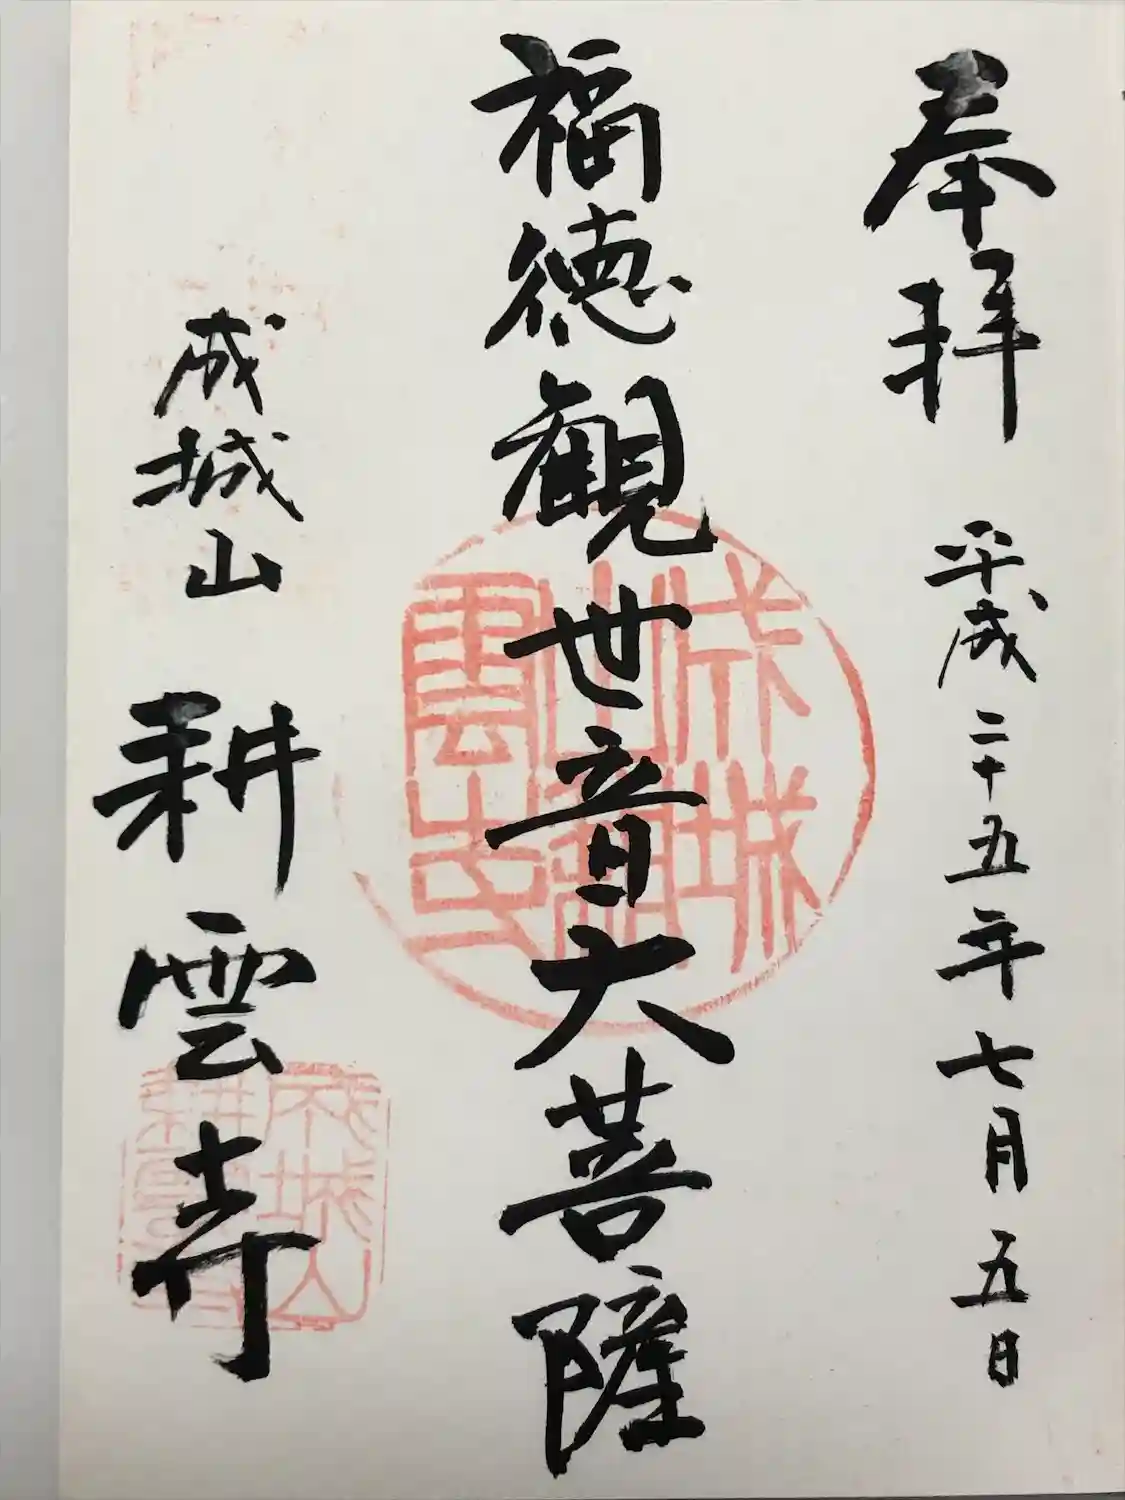 奉拝 平成二十五年七月五日
福徳観世音大菩薩
成城山 耕雲寺
成城山耕雲寺
成城山耕雲寺